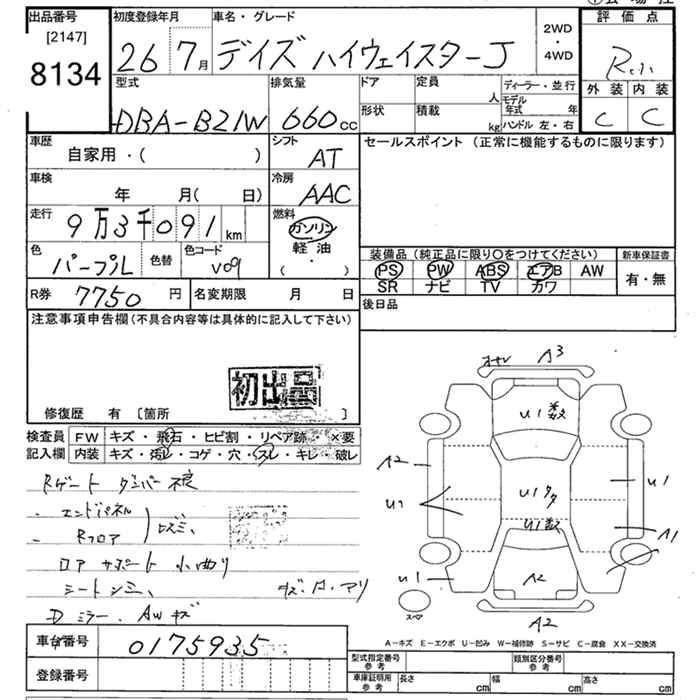 出品番号 初度登録年月 車名・グレード 評価点
[2147]
8134
26 7月 デイズ ハイウェイスターJ
2WD
・
4WD
外装 内装
C C
型式 排気量 ドア 定員 人 ディーラー・並行
DBA-B21W 660cc
形状 積載 kg
モデル年式 年
ハンドル 左・右
車歴 シフト セールスポイント (正常に機能するものに限ります)
自家用・( )
AT
車検 冷房
年 月( 日)
AAC
走行 燃料
9万3千091km
ガソリン
軽油
( ・ )
色 色替 色コード
パープル V09
装備品 (純正品に限り○をつけてください) 新車保証書
PS PW ABS エアB AW 有・無
SR ナビ TV カワ
R券 7750円 名変期限 月 日
後日品
注意事項申告欄(不具合内容等は具体的に記入して下さい)
初出品
修復歴 有 [箇所 ]
検査員 FW キズ・飛石・ヒビ割・リペア跡・×要
記入欄 内装 キズ・汚レ・コゲ・穴・スレ・キレ・破レ
Rゲート
・エンドパネル
・Rフロア
ロアサポート 小曲り
Dミラー、AWキズ
A3
U1
A2 U1
U1
U1
U1
A1
U1 A2
A2
スペア
A-キズ E-エクボ U-凹み W-補修跡 S-サビ C-腐食 XX-交換済
車台番号 0175935
登録番号
型式指定番号 参考 類別区分番号 参考
車庫証明用 参考 長さ cm 幅 cm 高さ cm